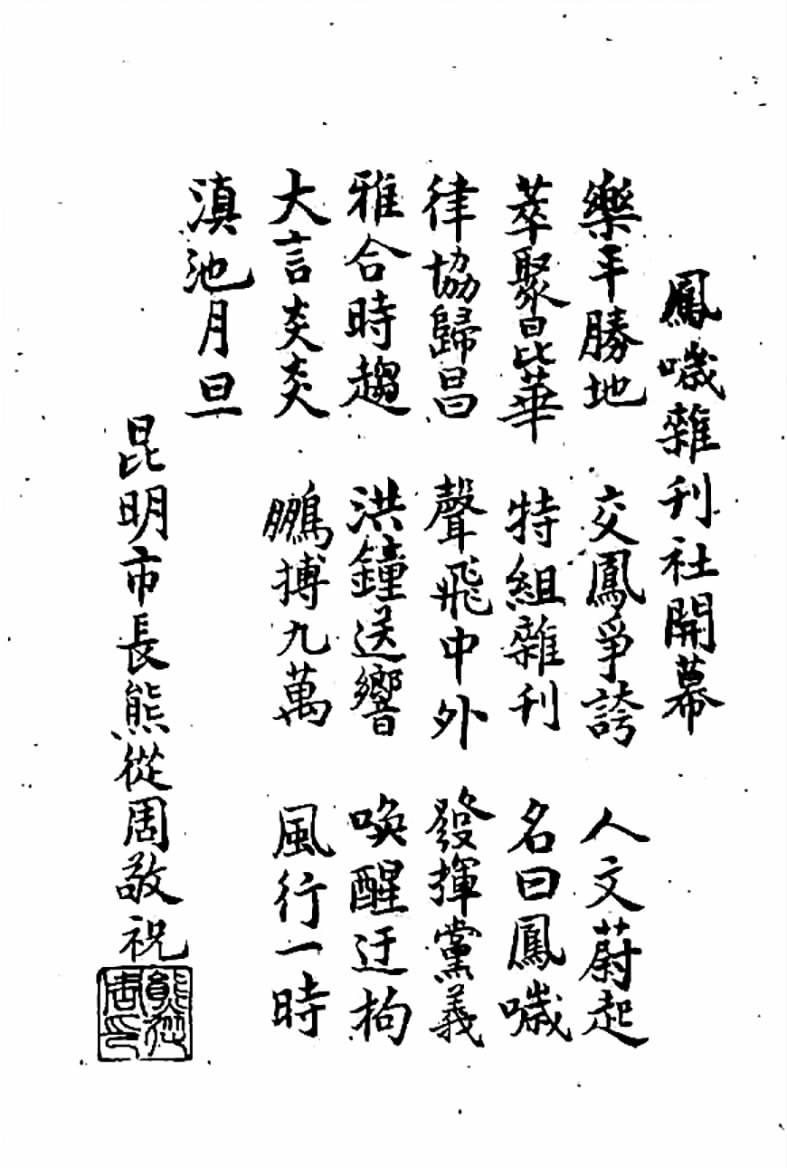 鳳噦雜刊社開幕
樂平勝地 交鳳爭誇 人文蔚起
萃聚昆華 特組雜刊 名曰鳳噦
律協歸昌 聲飛中外 發揮黨義
雅合時趨 洪鐘送響 喚醒迂拘
大言炎炎 鵬搏九萬 風行一時
滇池月旦
昆明市長熊從周敬祝
熊從周印